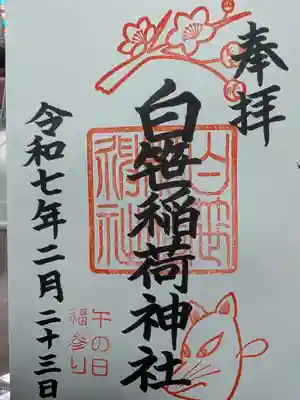 奉拝
白笹稲荷神社
令和七年二月二十三日
午の日
福参り